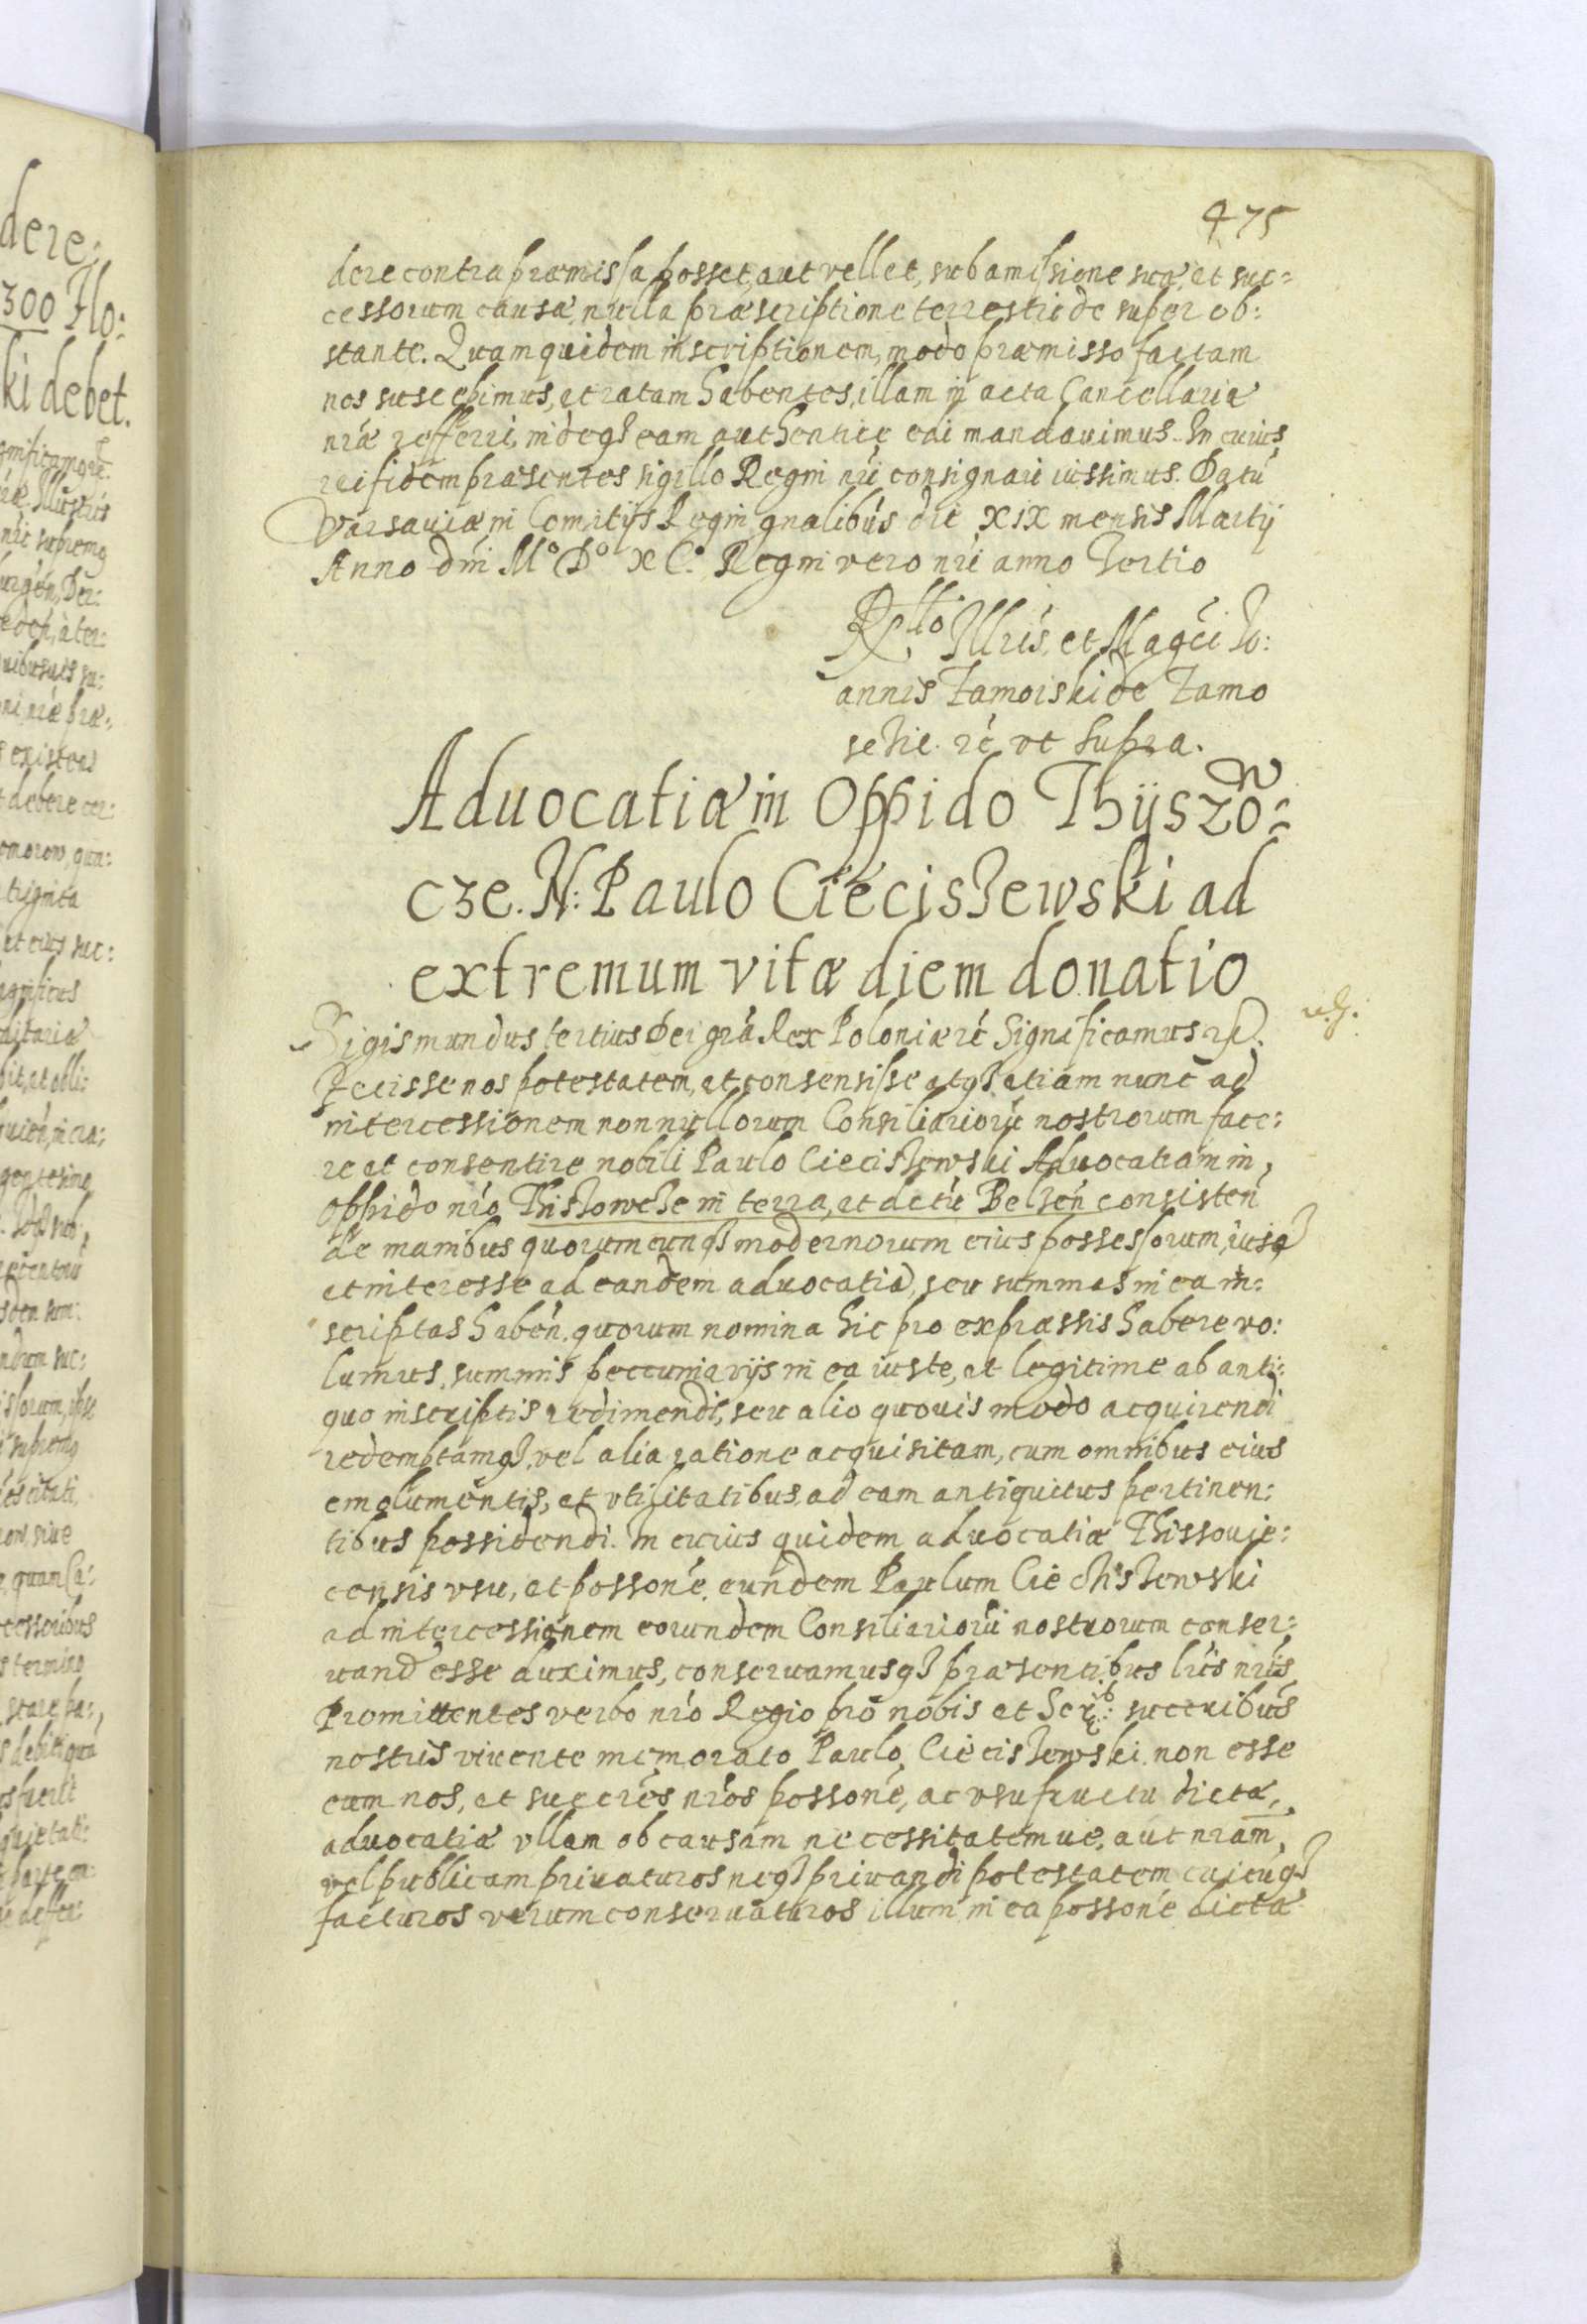 475
dere contra præmissa posset, aut vellet, sub amissione suæ, et suc:
cessorum causæ, nulla præscriptione terrestri de super ob:
stante. Quam quidem inscriptionem, modo præmisso factam
nos suscepimus, et ratam habentes, illam in acta Cancellariæ
nrǽ refferri, indeqȝ eam authentice edi mandauimus. In cuius
rei fidem præsentes sigillo Regni nrí consignari iussimus. Datú
Varsauiæ in Comitijs Regni gnalibús die XIX mensis Martij
Anno dní Mº Dº XCº. Regni vero nrí anno tertio
Rello Illrís, et Magci Io:
annis Zamoiski de Zamo
sczie. rć vt supra.
Aduocatiæ in Oppido Thyszow:
cze. N: Paulo Cieciszewski ad
extremum vitæ diem donatio
Sigismundus tertius Dei grá Rex Poloniæ rć Significamus rć.
Fecisse nos potestatem, et consensisse atqȝ etiam nunc ad
intercessionem nonnullorum Consiliariorú nostrorum face:
re et consentire nobili Paulo Cieciszewski Aduocatiam in,
oppido nró Thiszowcze in terra, et dctú Belzeń consisteń
de manibus quorumcunqȝ modernorum eius possessorum, iusqȝ
et interesse ad eandem aduocatiā, seu summas in ea in:
scriptas habeń. quorum nomina hic pro expressis habere vo:
lumus, summis peccuniarijs in ea iuste, et legitime ab anti:
quo inscriptis redimendi, seu alio quouis modo acquirendi
redemptamqȝ, vel alia ratione acquisitam, cum omnibus eius
emolumentis, et vtilitatibus, ad eam antiquitus pertinen:
tibus possidendi. In cuius quidem aduocatiæ Thissouie:
censis vsu, et possoné, eundem Paulum Ciechiszewski
ad intercessionem eorundem Consiliariorú nostrorum conser:
uand esse duximus, conseruamusqȝ præsentibus lrís nrís
Promittentes verbo nró Regio pro nobis et Ser: succribús
nostris viuente memorato Paulo, Cieciszewski non esse
eum nos, et succrés nrós possoné, ac vsufructu dictæ,
aduocatiæ vllam ob causam necessitatemue, aut nram,
vel publicam priuaturos neqȝ priuandi potestatem cuicuqȝ
facturos verum conseruaturos illum in ea possoné dictæ